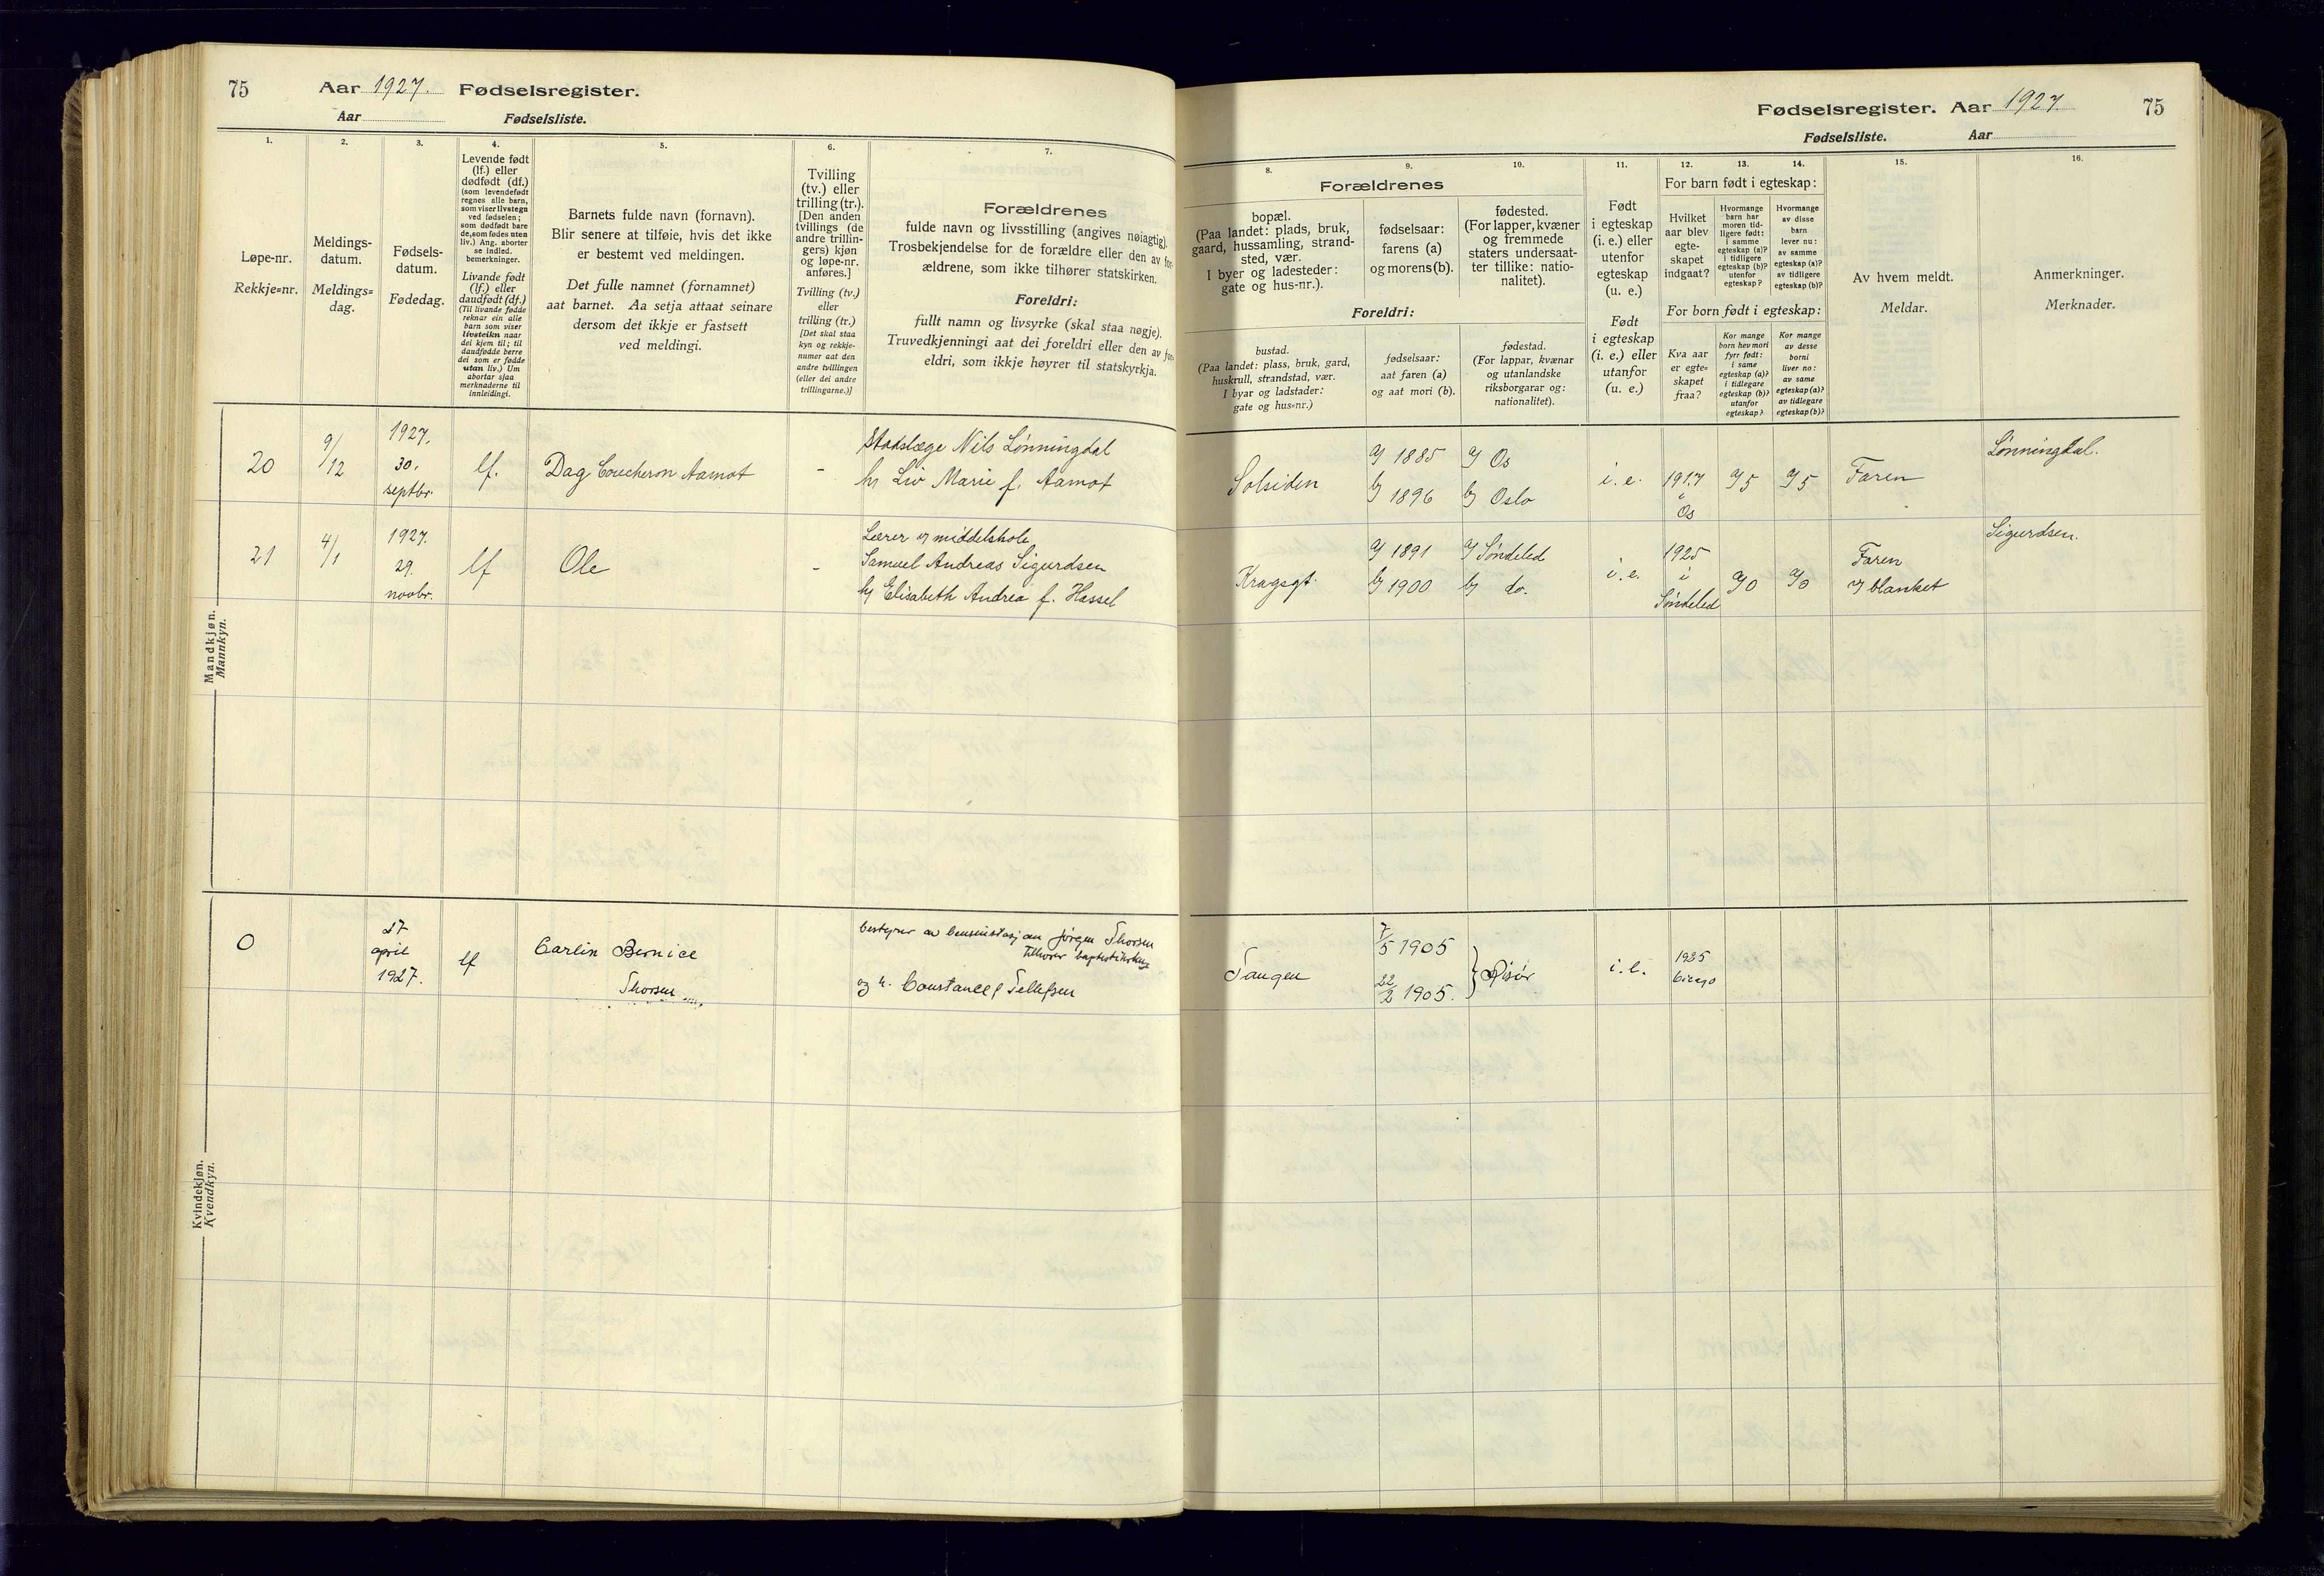 75
Aar 1927. Fødselsregister.
Aar Fødselsliste.
1.
Løpe-nr.
Rekkje=nr.
2.
Meldings-
datum.
Meldings=
dag.
3.
Fødsels-
datum.
Fødedag.
4.
Levende født
(lf.) eller
dødfødt (df.)
(som levendefødt
regnes alle barn,
som viser livstegn
ved fødselen;
som dødfødt bare
de, som fødes uten
liv.) Ang. aborter
se indled.
bemerkninger.
Livande født
(lf.) eller
daudfødt (df.)
(Til livande fødde
reknar ein alle
barn som viser
livsteikn naar
dei kjem til; til
daudfødde berre
dei som er fødde
utan liv.) Um
abortar sjaa
merknaderne til
innleidingi.
5.
Barnets fulde navn (fornavn).
Blir senere at tilføie, hvis det ikke
er bestemt ved meldingen.
Det fulle namnet (fornamnet)
aat barnet. Aa setja attaat seinare
dersom det ikkje er fastsett
ved meldingi.
6.
Tvilling
(tv.) eller
trilling (tr.).
[Den anden
tvillings (de
andre trillin-
gers) kjøn
og løpe-nr.
anføres.]
Tvilling (tv.)
eller
trilling (tr.)
[Det skal staa
kyn og rekkje-
numer aat den
andre tvillingen
(eller dei andre
trillingarne.)]
7.
Forældrenes
fulde navn og livsstilling (angives nøiagtig).
Trosbekjendelse for de forældre eller den av for-
ældrene, som ikke tilhører statskirken.
Foreldri:
fullt namn og livsyrke (skal staa nøgje).
Truvedkjenningi aat dei foreldri eller den av for-
eldri, som ikkje høyrer til statskyrkja.
Mandkjøn.
Mannkyn.
20
9/12
1927.
30.
septbr.
lf.
Dag Coucheron Aamot
-
Stadslæge Nils Lønningdal
h. Liv Marie f. Aamot
21
4/1
1927.
29.
novbr.
lf
Ole
-
Lærer v middelskole
Samuel Andreas Sigurdsen
h. Elisabeth Andrea f. Hassel
Kvindekjøn.
Kvendkyn.
0
27
april
1927.
lf
Carlin Bernice
Thorsen
bestyrer av bensinstasjon Jørgen Thorsen
Tilhører baptistkirken
og h. Constance f Tellefsen
Fødselsregister. Aar 1927.
75
Fødselsliste. Aar
8.
Forældrenes
bopæl.
(Paa landet: plads, bruk,
gaard, hussamling, strand-
sted, vær.
I byer og ladesteder:
gate og hus-nr.).
Foreldri:
bustad.
(Paa landet: plass, bruk, gard,
huskrull, strandstad, vær.
I byar og ladstader:
gate og hus=nr.)
9.
fødselsaar:
farens (a)
og morens (b).
fødselsaar:
aat faren (a)
og aat mori (b).
10.
fødested.
(For lapper, kvæner
og fremmede
staters undersaat-
ter tillike: natio-
nalitet).
fødestad.
(For lappar, kvænar
og utanlandske
riksborgarar og:
nationalitet).
11.
Født
i egteskap
(i. e.) eller
utenfor
egteskap
(u. e.)
Født
i egteskap
(i. e.) eller
utanfor
(u. e.)
12.
13.
14.
For barn født i egteskap:
Hvilket
aar blev
egte-
skapet
indgaat?
Hvormange
barn har
moren tid-
ligere født:
i samme
egteskap (a)?
i tidligere
egteskap (b)?
utenfor
egteskap?
Hvormange
av disse
barn
lever nu:
av samme
egteskap (a)?
av tidligere
egteskap (b)?
For born født i egteskap:
Kva aar
er egte=
skapet
fraa?
Kor mange
born hev mori
fyrr født:
i same
egteskap (a)?
i tidlegare
egteskap (b)?
utanfor
egteskap?
Kor mange
av desse
borni
liver no:
av same
egteskap (a)?
av tidlegare
egteskap (b)?
15.
Av hvem meldt.
Meldar.
16.
Anmerkninger.
Merknader.
Solsiden
a) 1885
b) 1896
a) Os
b) Oslo
i. e.
1917
i
Os
a) 5
a) 5
Faren
Lønningdal.
Kragsgt.
a) 1891
b) 1900
a) Søndeled
b) do.
i. e.
1925
i
Søndeled
a) 0
a) 0
Faren
v blanket
Sigurdsen.
Tangen
7/5 1905
22/2 1905.
} Risør
i. e.
1925
Cicago